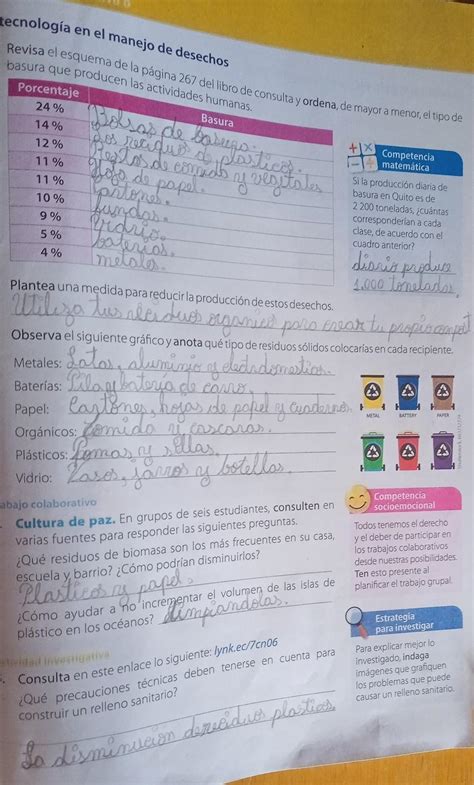 tecnología en el manejo de desechos
Revisa el esquema de la página 267 del libro de consulta y ordena, de mayor a menor, el tipo de
basura que producen las actividades humanas.
Porcentaje Basura
24 % Bolsas de basura.
14 % Los reciduos de plasticos.
12 % Restos de comida y vegetales
11 % Hojas de papel.
11 % Cartones.
10 % fundas.
9 % Vidrio.
5 % baterias.
4 % metales.
Competencia
matemática
Si la producción diaria de
basura en Quito es de
2 200 toneladas, ¿cuántas
corresponderían a cada
clase, de acuerdo con el
cuadro anterior?
diario produce
1.000 toneladas
Plantea una medida para reducir la producción de estos desechos.
Utiliza tus reciduos organico para crear tu propio compost
Observa el siguiente gráfico y anota qué tipo de residuos sólidos colocarías en cada recipiente.
Metales: Latas, aluminio y
Baterías: Pila y bateria de carro.
Papel: Cartones, hojas de papel y cuadernos
Orgánicos: Comida y cascaras.
Plásticos: Pomas y sillas.
Vidrio: Vasos, jarros y botellas.
METAL BATTERY PAPER
abajo colaborativo
Cultura de paz. En grupos de seis estudiantes, consulten en
varias fuentes para responder las siguientes preguntas.
¿Qué residuos de biomasa son los más frecuentes en su casa,
escuela y barrio? ¿Cómo podrían disminuirlos?
Plasticos y papel.
¿Cómo ayudar a no incrementar el volumen de las islas de
plástico en los océanos? limpiandolas.
Competencia
socioemocional
Todos tenemos el derecho
y el deber de participar en
los trabajos colaborativos
desde nuestras posibilidades.
Ten esto presente al
planificar el trabajo grupal.
Estrategia
para investigar
Para explicar mejor lo
investigado, indaga
imágenes que grafiquen
los problemas que puede
causar un relleno sanitario.
Actividad investigativa
Consulta en este enlace lo siguiente: lynk.ec/7cn06
¿Qué precauciones técnicas deben tenerse en cuenta para
construir un relleno sanitario?
La disminución de reciduos plasticos